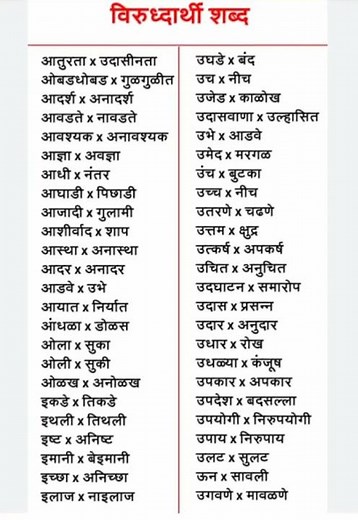 विरुध्दार्थी शब्द
आतुरता x उदासीनता
ओबडधोबड x गुळगुळीत
आदर्श x अनादर्श
आवडते x नावडते
आवश्यक x अनावश्यक
आज्ञा x अवज्ञा
आधी x नंतर
आघाडी x पिछाडी
आजादी x गुलामी
आशीर्वाद x शाप
आस्था x अनास्था
आदर x अनादर
आडवे x उभे
आयात x निर्यात
आंधळा x डोळस
ओला x सुका
ओली x सुकी
ओळख x अनोळख
इकडे x तिकडे
इथली x तिथली
इष्ट x अनिष्ट
इमानी x बेइमानी
इच्छा x अनिच्छा
इलाज x नाइलाज
उघडे x बंद
उच x नीच
उजेड x काळोख
उदासवाणा x उल्हासित
उभे x आडवे
उमेद x मरगळ
उंच x बुटका
उच्च x नीच
उतरणे x चढणे
उत्तम x क्षुद्र
उत्कर्ष x अपकर्ष
उचित x अनुचित
उदघाटन x समारोप
उदास x प्रसन्न
उदार x अनुदार
उधार x रोख
उधळ्या x कंजूष
उपकार x अपकार
उपदेश x बदसल्ला
उपयोगी x निरुपयोगी
उपाय x निरुपाय
उलट x सुलट
ऊन x सावली
उगवणे x मावळणे